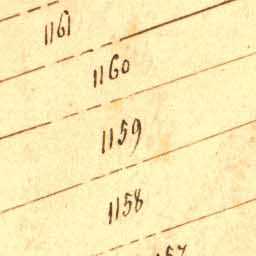 1161
1160
1159
1158